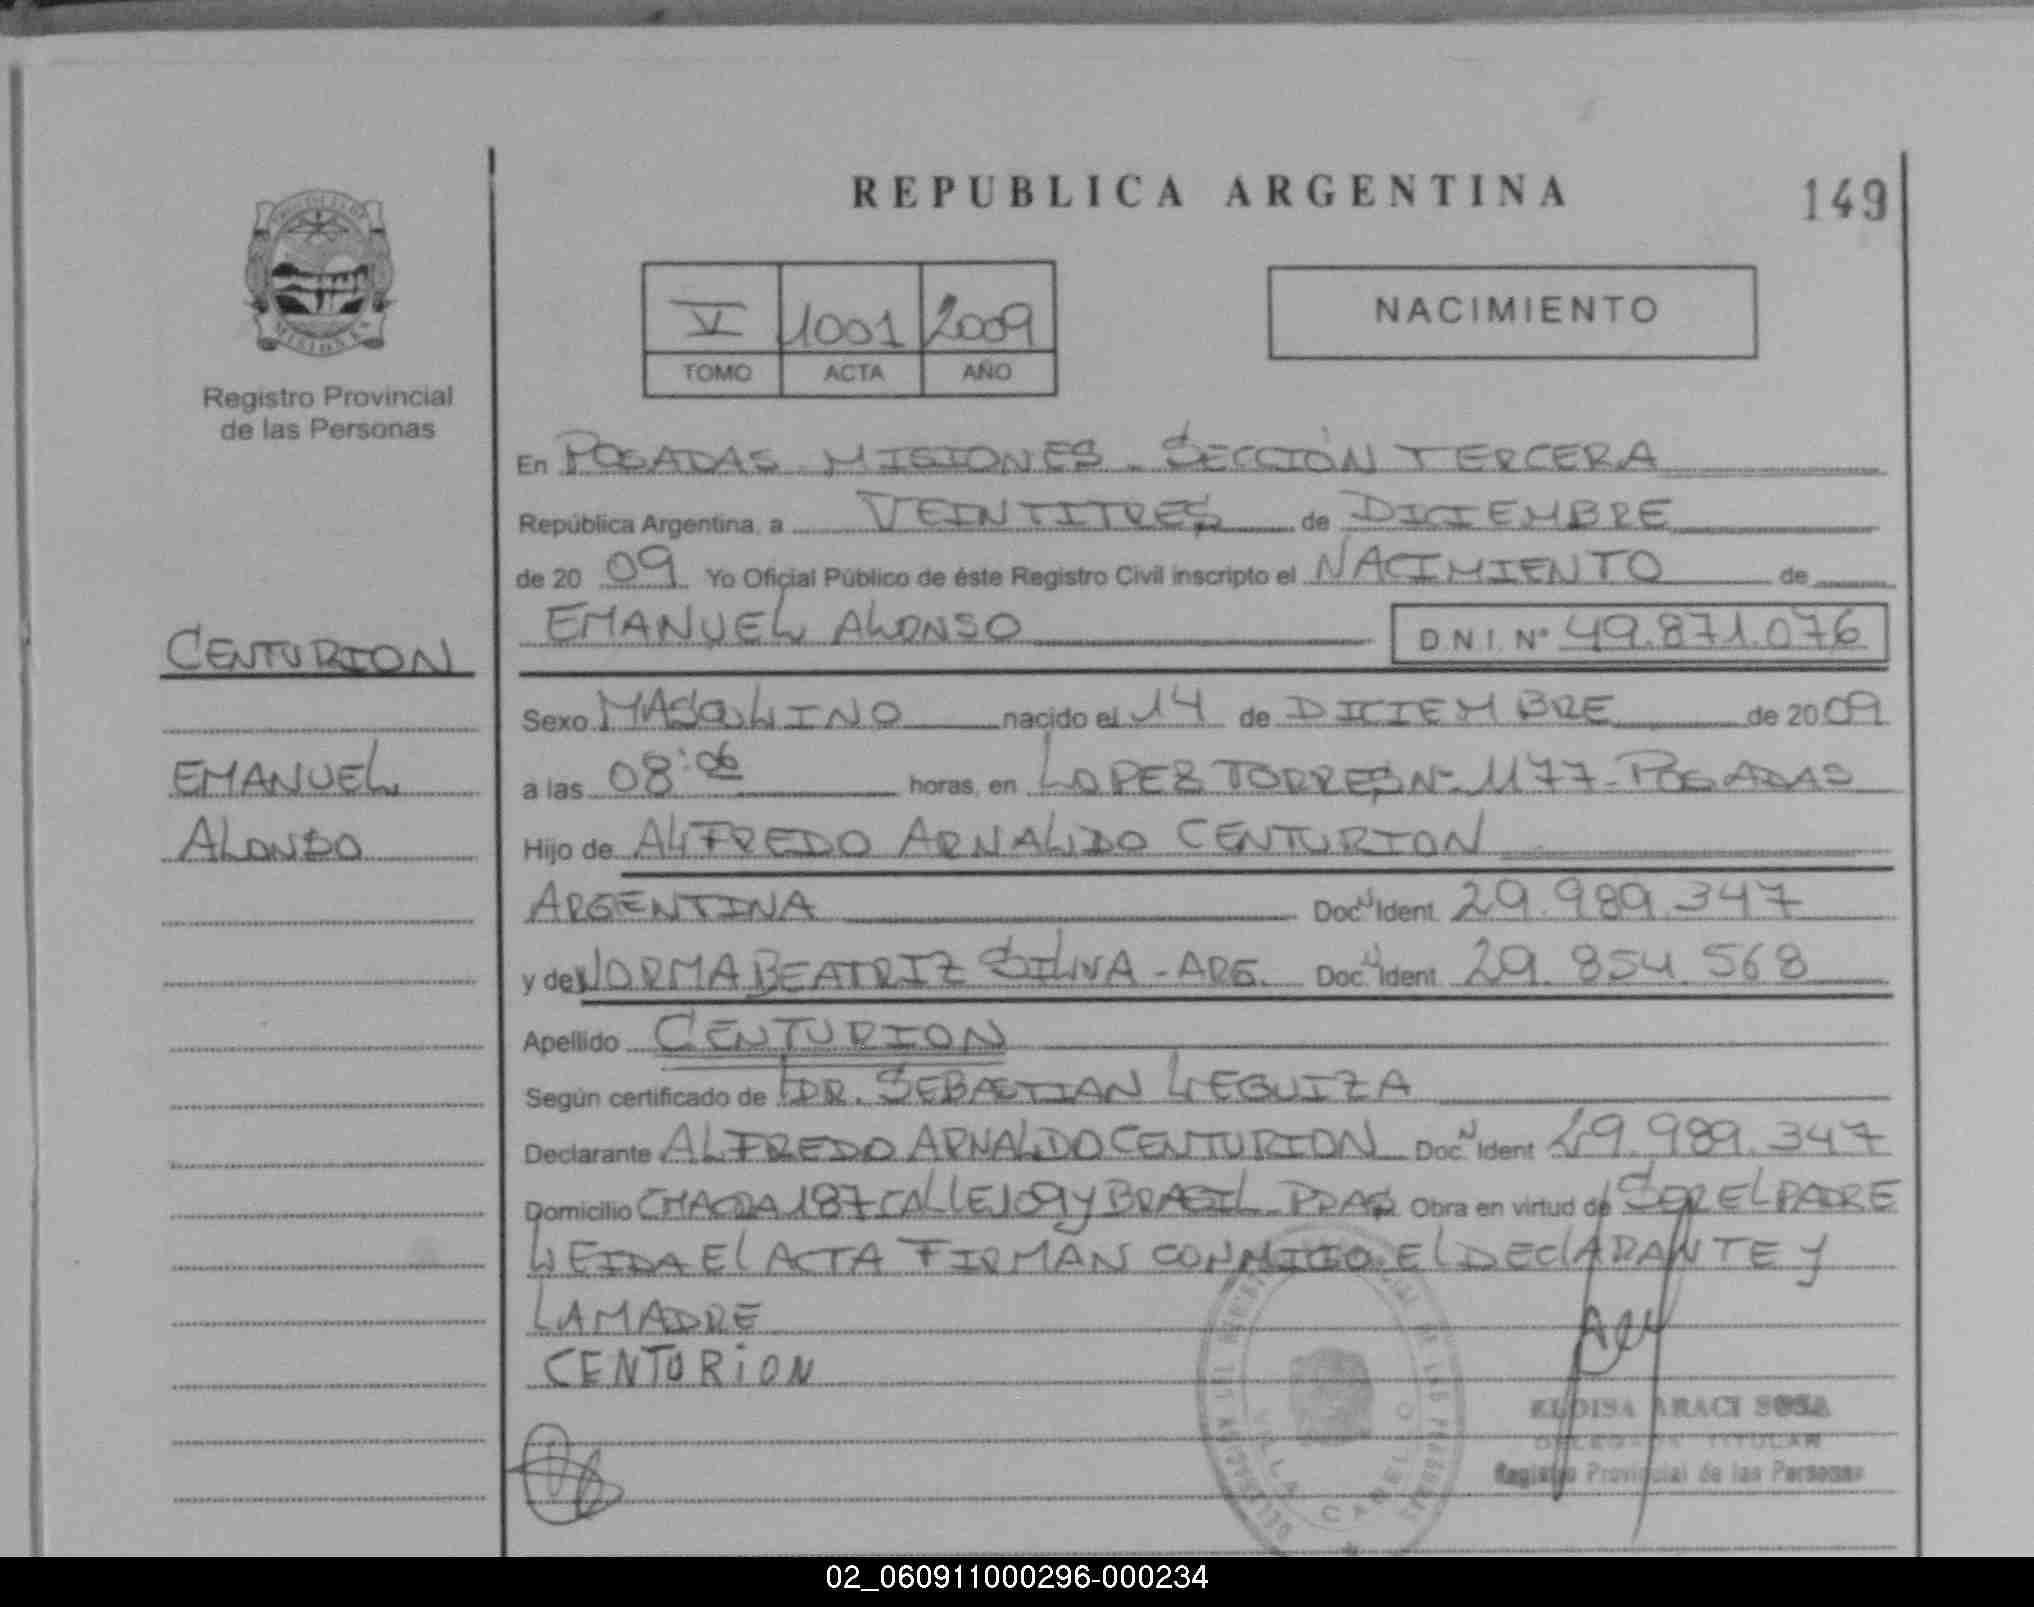 REPUBLICA ARGENTINA
149
V 1001 2009
TOMO ACTA AÑO
NACIMIENTO
Registro Provincial
de las Personas
CENTURION
EMANUEL
ALONSO
En POSADAS MISIONES - SECCIÓN TERCERA
República Argentina, a VEINTITRES de DICIEMBRE
de 20 09 Yo Oficial Público de éste Registro Civil inscripto el NACIMIENTO de
EMANUEL ALONSO D.N.I. Nº 49.871.076
Sexo MASCULINO nacido el 14 de DICIEMBRE de 2009
a las 08:06 horas, en LOPEZ TORRES Nº 1177 - POSADAS
Hijo de ALFREDO ARNALDO CENTURION
ARGENTINA Doc. Ident 29.989.347
y de NORMA BEATRIZ SILVA - ARG. Doc. Ident 29.854.568
Apellido CENTURION
Según certificado de DR. SEBASTIAN LEGUIZA
Declarante ALFREDO ARNALDO CENTURION Doc. Ident 29.989.347
Domicilio CHACRA 187 CALLE 109 y BRASIL PDAS Obra en virtud de SER EL PADRE
LEIDA EL ACTA FIRMAN CONMIGO EL DECLARANTE Y
LA MADRE
CENTURiON
ELOISA ARACI SOSA
DELEGADA TITULAR
Registro Provincial de las Personas
VILLA CABELLO
02_060911000296-000234